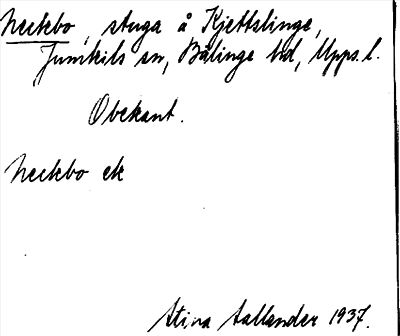 Neckbo, stuga å Kjettslinge,
Jumkils sn, Bälinge hd, Upps. l.
Obekant.
Neckbo ek
Stina Aallander 1937.